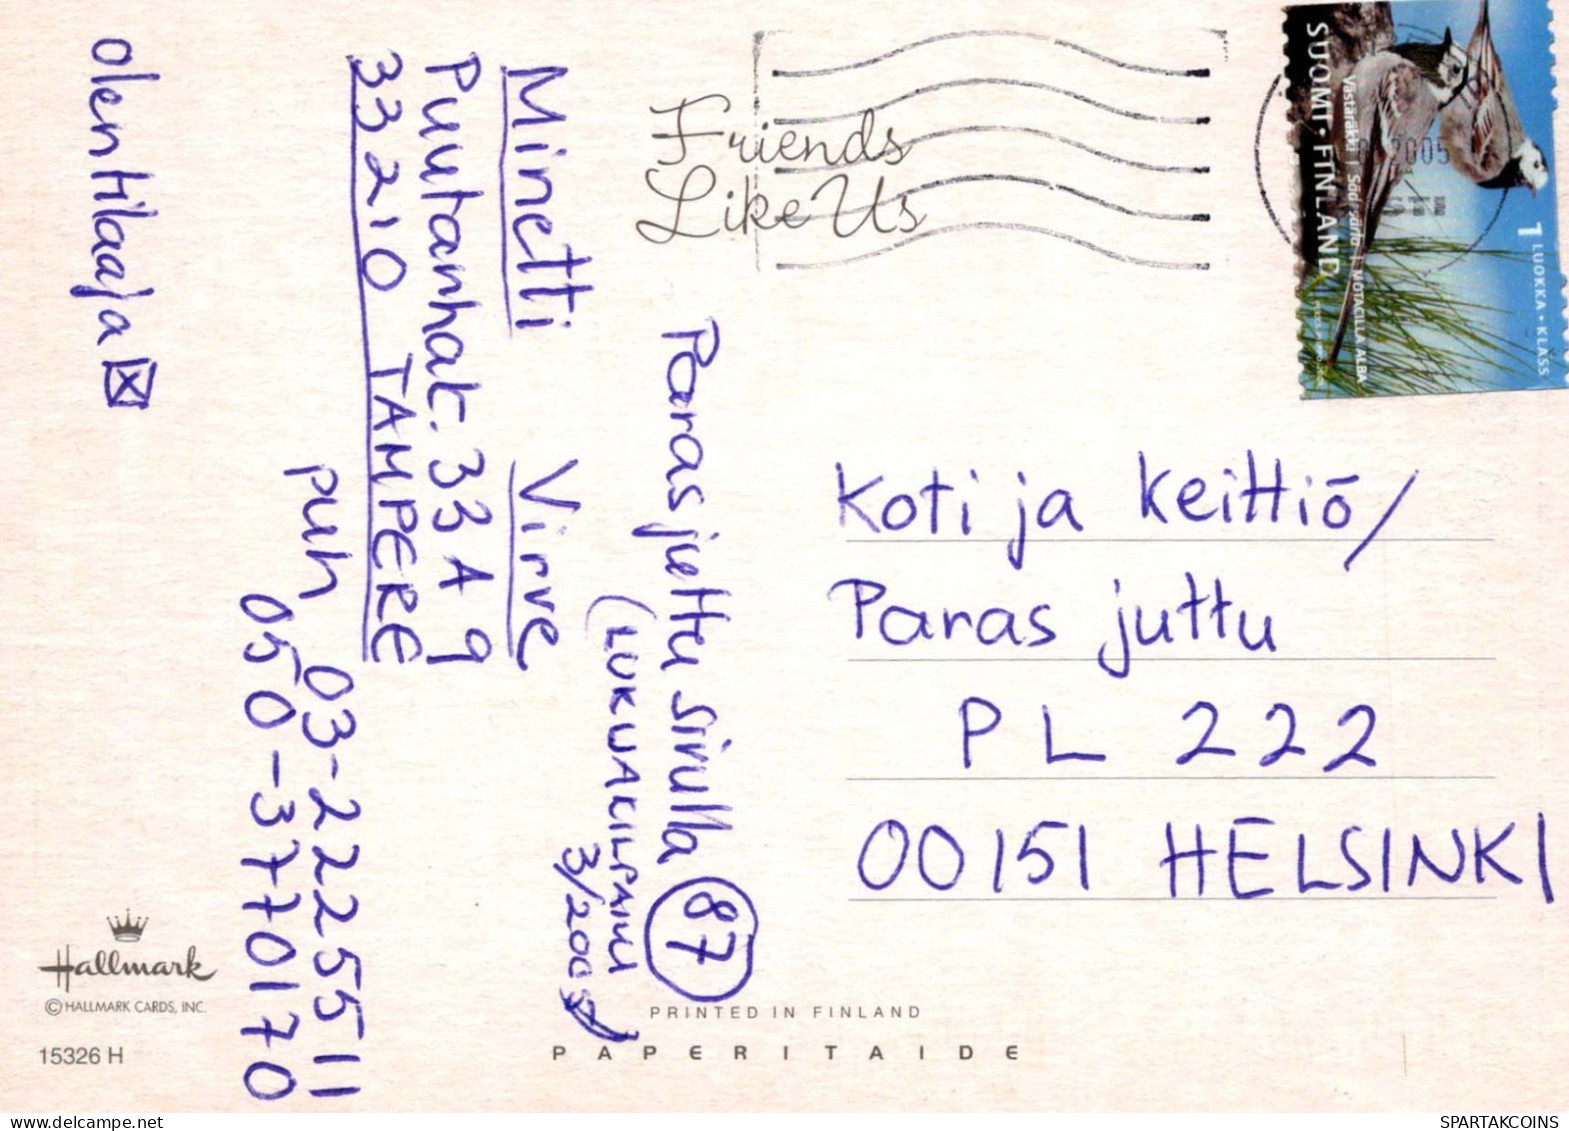 Paras juttu sivulla 87
(LUKUJAKILPAILU
3/2005)
Minetti Virve
Puutarhak. 33 A 9
33210 TAMPERE
puh 03-2225511
050-3770170
olen tilaaja ☒
Friends
Like Us
Koti ja keittiö/
Paras juttu
PL 222
00151 HELSINKI
SUOMI·FINLAND
Västäräkki | Sädesärla | MOTACILLA ALBA
1 LUOKKA·KLASS
2005
Hallmark
© HALLMARK CARDS, INC.
15326 H
PRINTED IN FINLAND
PAPERITAIDE
www.delcampe.net
SPARTAKCOINS